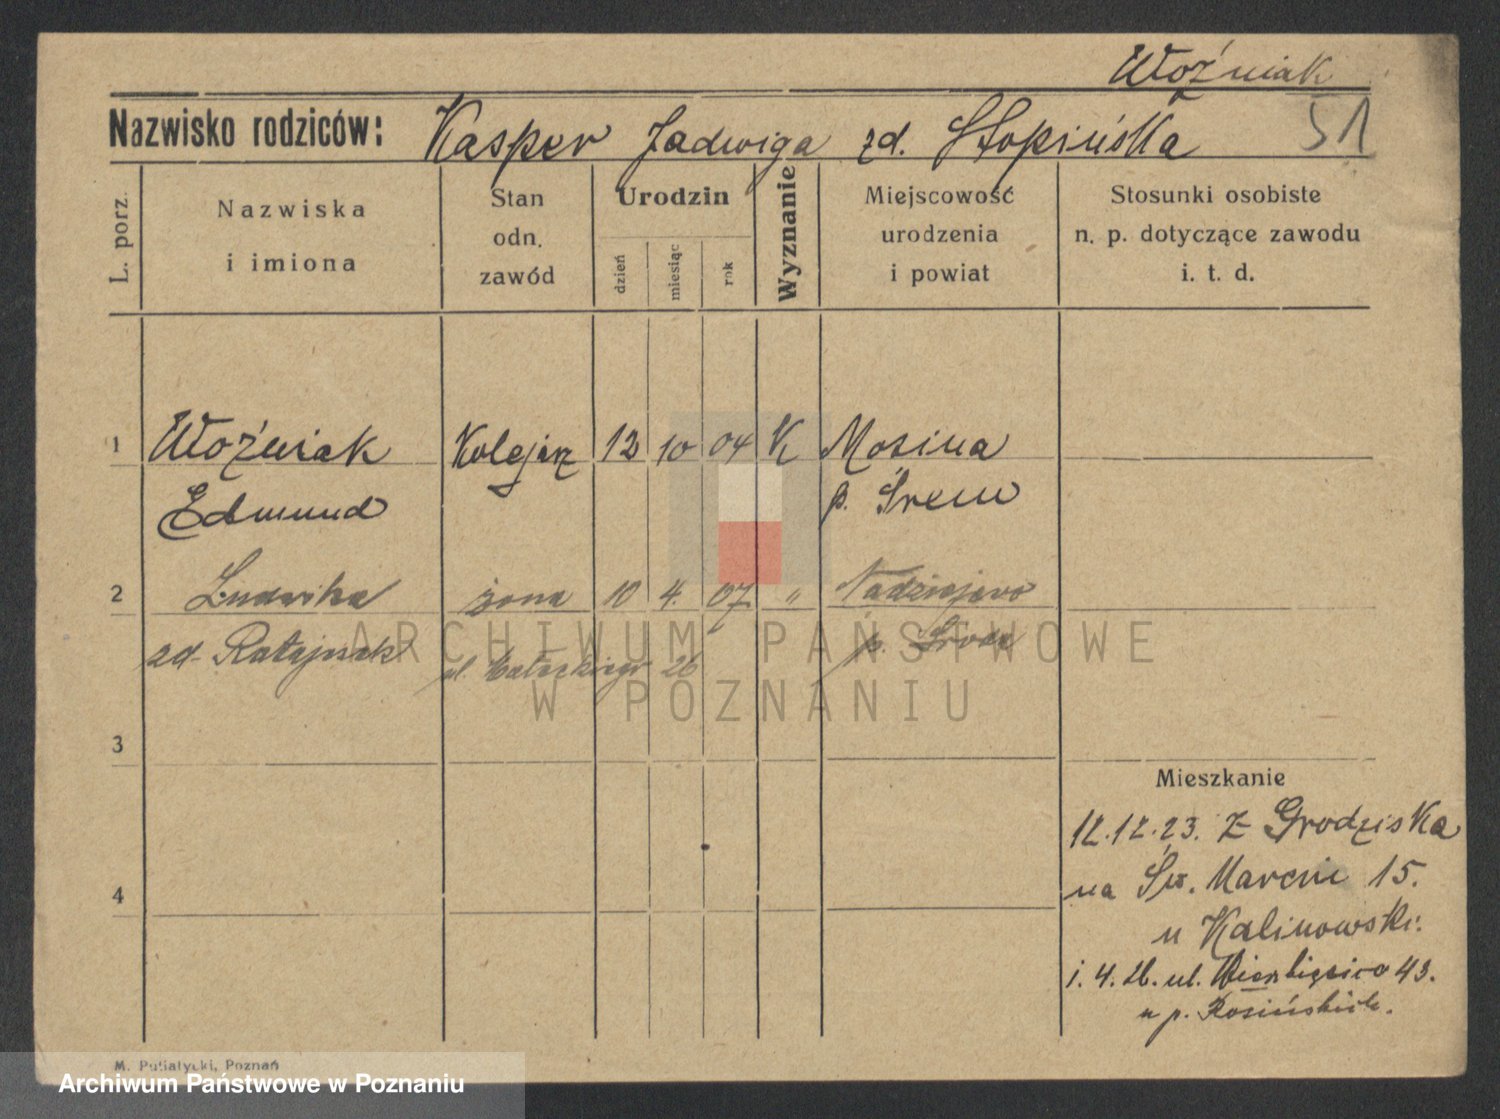 Woźniak
51
Nazwisko rodziców: Kasper Jadwiga zd. Słopińska
L. porz.
Nazwiska
i imiona
Stan
odn.
zawód
Urodzin
dzień
miesiąc
rok
Wyznanie
Miejscowość
urodzenia
i powiat
Stosunki osobiste
n. p. dotyczące zawodu
i. t. d.
1 Woźniak Kolejarz 12 10 04 K Mosina
Edmund p. Śrem
2 Ludwika żona 10 4. 07 " Nadziejewo
zd. Ratajczak ul. 26 p. Środa
ARCHIWUM PAŃSTWOWE
W POZNANIU
3
Mieszkanie
12.12.23. z Grodziska
na Św. Marcin 15.
4
u Kalinowski.
1. 4. 26. ul. Wierzbięcice 43.
u p. Rosińskich.
M. Putiatycki, Poznań
Archiwum Państwowe w Poznaniu